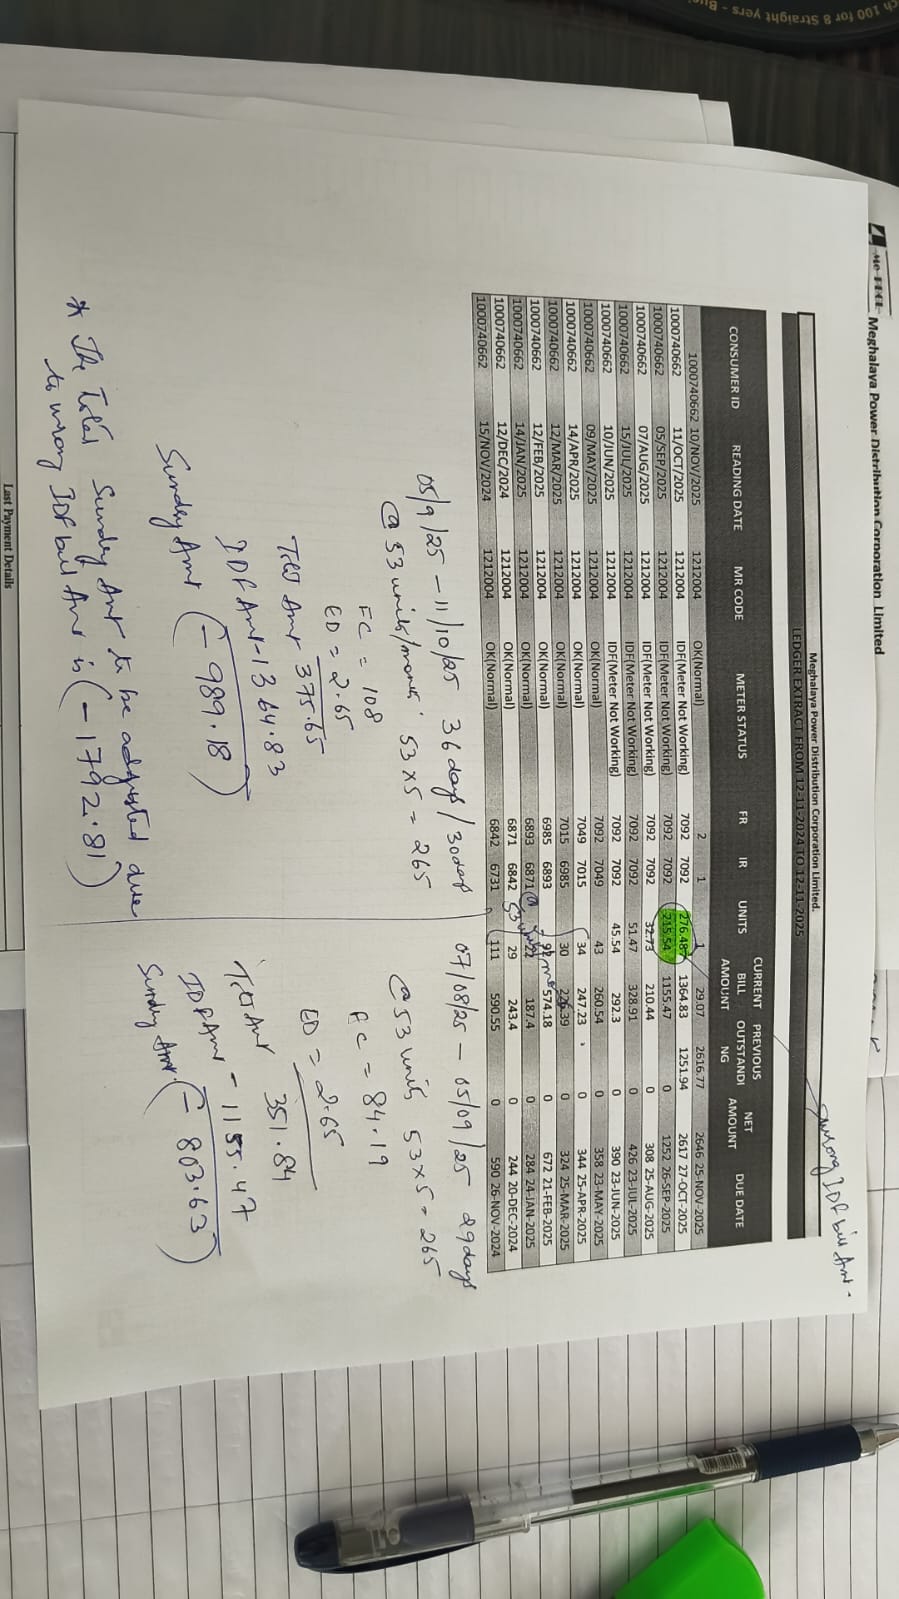 ch 100 for 8 Straight yers - Bus
Me PDCL Meghalaya Power Distribution Corporation Limited
wrong IDF bill Amt.
Meghalaya Power Distribution Corporation Limited.
LEDGER EXTRACT FROM 12-11-2024 TO 12-11-2025
CONSUMER ID READING DATE MR CODE METER STATUS FR IR UNITS CURRENT BILL AMOUNT PREVIOUS OUTSTANDI NG NET AMOUNT DUE DATE
1000740662 10/NOV/2025 1212004 OK(Normal) 2 1 1 29.07 2616.77 2646 25-NOV-2025
1000740662 11/OCT/2025 1212004 IDF(Meter Not Working) 7092 7092 276.48 1364.83 1251.94 2617 27-OCT-2025
1000740662 05/SEP/2025 1212004 IDF(Meter Not Working) 7092 7092 215.54 1155.47 0 1252 26-SEP-2025
1000740662 07/AUG/2025 1212004 IDF(Meter Not Working) 7092 7092 32.73 210.44 0 308 25-AUG-2025
1000740662 15/JUL/2025 1212004 IDF(Meter Not Working) 7092 7092 51.47 328.91 0 426 23-JUL-2025
1000740662 10/JUN/2025 1212004 IDF(Meter Not Working) 7092 7092 45.54 292.3 0 390 23-JUN-2025
1000740662 09/MAY/2025 1212004 OK(Normal) 7092 7049 43 260.54 0 358 23-MAY-2025
1000740662 14/APR/2025 1212004 OK(Normal) 7049 7015 34 247.23 0 344 25-APR-2025
1000740662 12/MAR/2025 1212004 OK(Normal) 7015 6985 30 0 324 25-MAR-2025
1000740662 12/FEB/2025 1212004 OK(Normal) 6985 6893 92 574.18 0 672 21-FEB-2025
1000740662 14/JAN/2025 1212004 OK(Normal) 6893 6871 22 187.4 0 284 24-JAN-2025
1000740662 12/DEC/2024 1212004 OK(Normal) 6871 6842 29 243.4 0 244 20-DEC-2024
1000740662 15/NOV/2024 1212004 OK(Normal) 6842 6731 111 590.55 0 590 26-NOV-2024
05/9/25 - 11/10/25 36 days/30days
@ 53 units/month. 53 x 5 = 265
FC = 108
ED = 2.65
Total Amt 375.65
IDF Amt - 1364.83
Sundry Amt (- 989.18)
07/08/25 - 05/09/25 29 days
@ 53 units 53 x 5 = 265
FC = 84.19
ED = 2.65
Total Amt 351.84
IDF Amt - 1155.47
Sundry Amt. (- 803.63)
* The Total Sundry Amt to be adjusted due
to wrong IDF bill Amt is (- 1792.81)
Last Payment Details